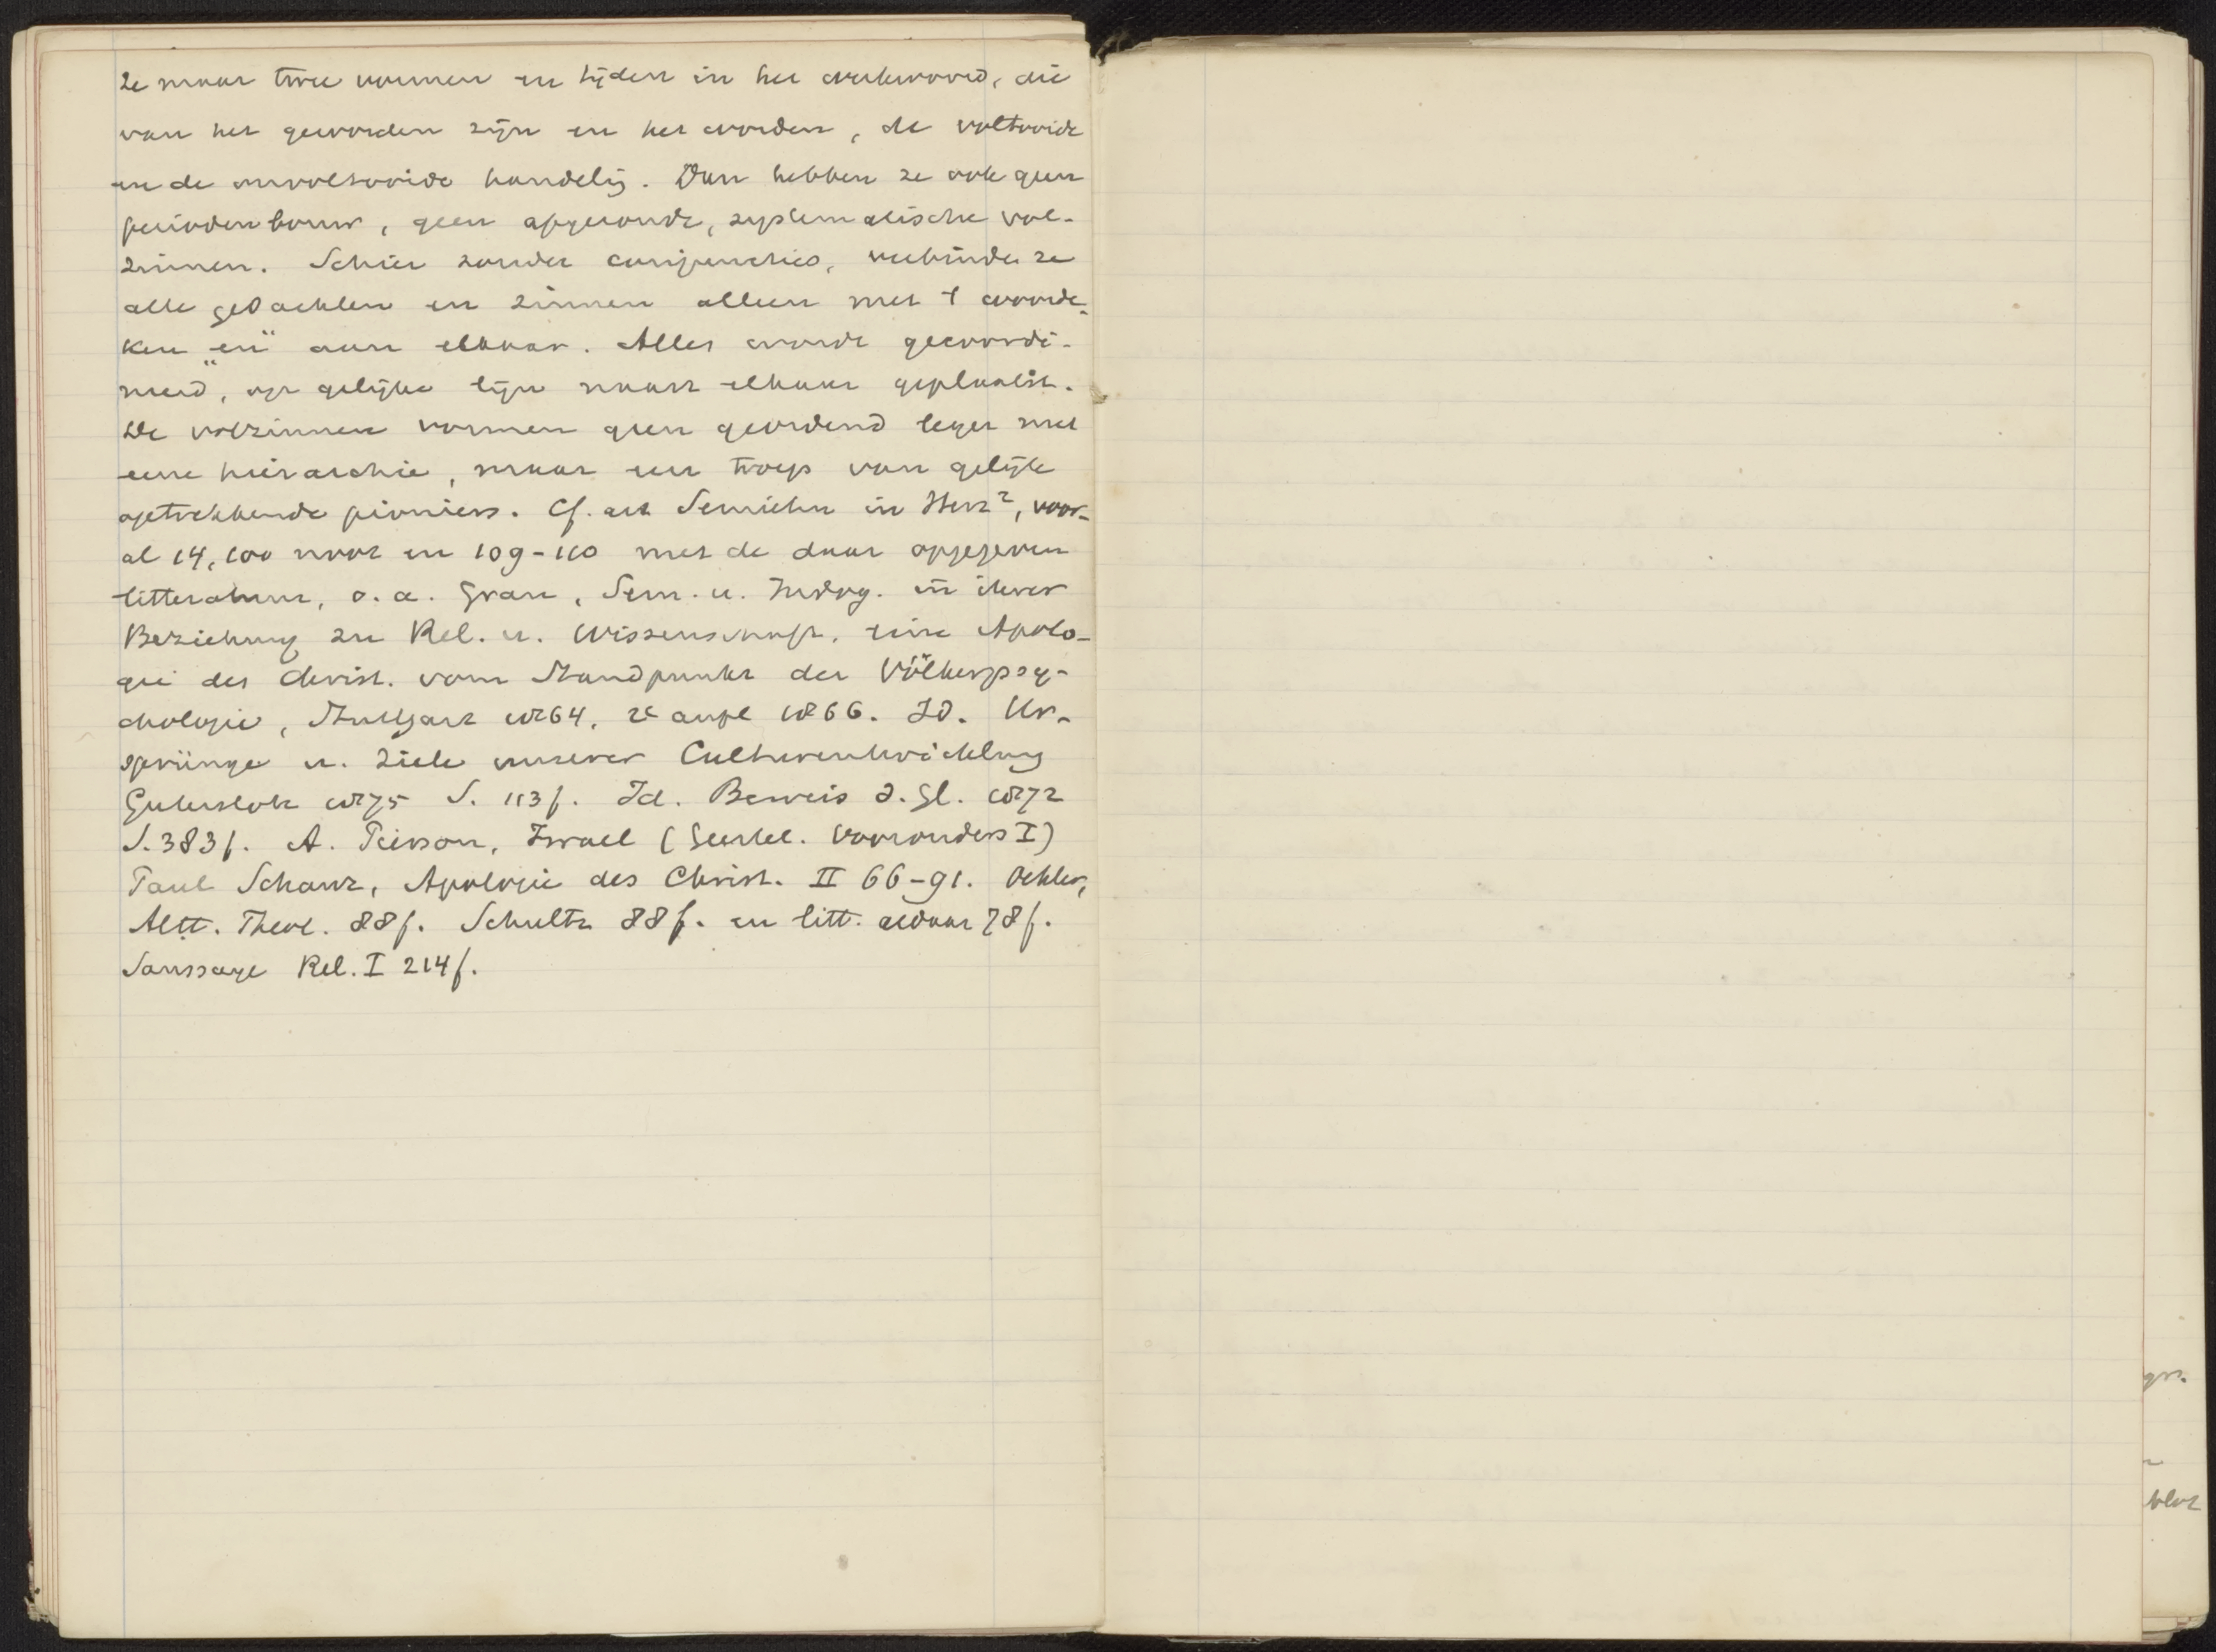 ze maar twee vormen en tijden in het werkwoord, die
van het geworden zijn en het worden, de voltooide
en de onvoltooide handelig. Dan hebben ze ook geen
periodenbouw, geen afgeronde, systematische vol-
zinnen. Schier zonder conjuncties, verbinden ze
alle gedachten en zinnen alleen met 't woorde-
ken „en” aan elkaar. Alles wordt gecoordi-
neerd, op gelijke lijn naast elkaar geplaatst.
De volzinnen vormen geen geordend leger met
eene hierarchie, maar een troep van gelijk
optrekkende pioniers. Cf. art Semiten in Herz², voor-
al 14, 100 noot en 109-110 met de daar opgegeven
litteratuur, o.a. Grau, Sem. u. Indog. in ihrer
Beziehung zu Rel. u. Wissenschaft, eine Apolo-
gie des Christ. vom Standpunkt der Völkerpsy-
chologie, Stuttgart 1864, 2e aufl 1866. Id. Ur-
sprünge u. Ziele unserer Culturentwicklung
Gutersloh 1875 S. 113f. Id. Beweis d. Gl. 1872
S. 383f. A. Pierson, Israel (Geestel. Voorouders I)
Paul Schanz, Apologie des Christ. II 66-91. Oehler,
Altt. Theol. 88f. Schultz 88f. en litt. aldaar 78f.
Saussaye Rel. I 214f.